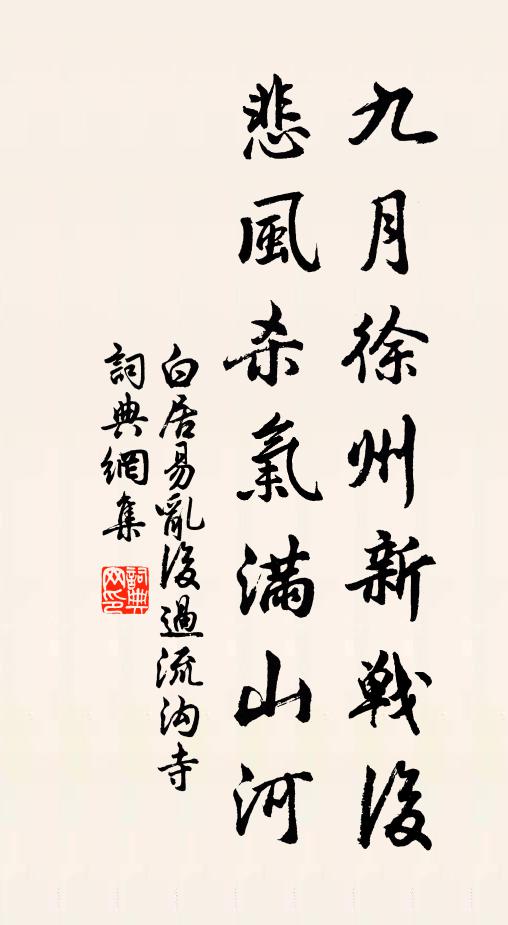 九月徐州新戦後
悲風杀氣满山河
白居易亂後過流沟寺
詞典網集
詞典網印